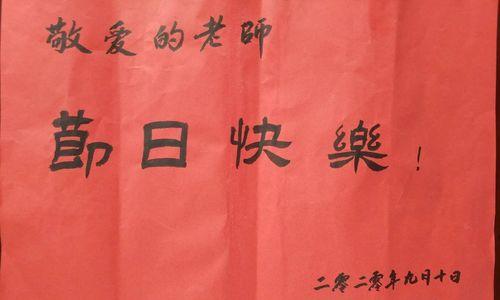 敬爱的老師
節日快樂！
二零二零年九月十日